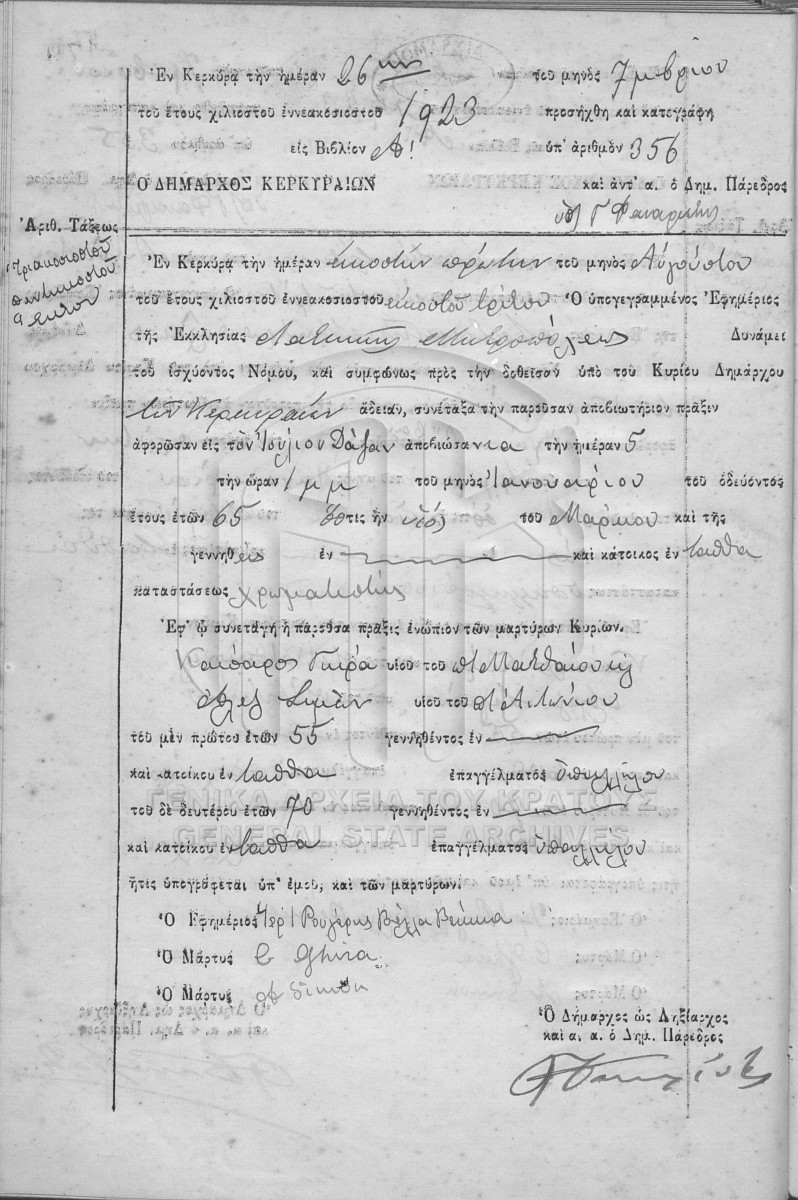 Ἐν Κερκύρᾳ τὴν ἡμέραν 26ην τοῦ μηνὸς 7μβρίου
τοῦ ἔτους χιλιοστοῦ ἐννεακοσιοστοῦ 1923 προσήχθη καὶ κατεγράφη
εἰς Βιβλίον Α! ὑπ' ἀριθμὸν 356
Ο ΔΗΜΑΡΧΟΣ ΚΕΡΚΥΡΑΙΩΝ καὶ ἀντ' α. ὁ Δημ. Πάρεδρος
Ἀριθ. Τάξεως
τριακοσιοστοῦ
πεντηκοστοῦ
ἕκτου
Ἐν Κερκύρᾳ τὴν ἡμέραν εἰκοστὴν πρώτην τοῦ μηνὸς Αὐγούστου
τοῦ ἔτους χιλιοστοῦ ἐννεακοσιοστοῦ εἰκοστοῦ τρίτου Ὁ ὑπογεγραμμένος Ἐφημέριος
τῆς Ἐκκλησίας Λατινικῆς Μητροπόλεως Δυνάμει
τοῦ ἰσχύοντος Νόμου, καὶ συμφώνως πρὸς τὴν δοθεῖσαν ὑπὸ τοῦ Κυρίου Δημάρχου
τῶν Κερκυραίων ἄδειαν, συνέταξα τὴν παροῦσαν ἀποβιωτήριον πρᾶξιν
ἀφορῶσαν εἰς τὸν Ἰούλιον Δάζαν ἀποβιώσαντα τὴν ἡμέραν 5
τὴν ὥραν 1 μμ τοῦ μηνὸς Ἰανουαρίου τοῦ ὁδεύοντος
ἔτους ἐτῶν 65 ὅστις ἦν υἱός τοῦ Μάρκου καὶ τῆς
γεννηθεὶς ἐν καὶ κάτοικος ἐν ἐνταῦθα
καταστάσεως χρωματιστής
Ἐφ' ᾧ συνετάγη ἡ παροῦσα πρᾶξις ἐνώπιον τῶν μαρτύρων Κυρίων.
Καίσαρος Γκιρά υἱοῦ τοῦ ποτὲ Ματθαίου καὶ
Ἀλεξ Σιμὼν υἱοῦ τοῦ ποτὲ Ἀντωνίου
τοῦ μὲν πρώτου ἐτῶν 55 γεννηθέντος ἐν
καὶ κατοίκου ἐν ἐνταῦθα ἐπαγγέλματος ὑπαλλήλου
τοῦ δὲ δευτέρου ἐτῶν 70 γεννηθέντος ἐν
καὶ κατοίκου ἐν ἐνταῦθα ἐπαγγέλματος ὑπαλλήλου
ἥτις ὑπογράφεται ὑπ' ἐμοῦ, καὶ τῶν μαρτύρων.
Ὁ Ἐφημέριος Ρουγέρης Βέλλα
Ὁ Μάρτυς C Ghira
Ὁ Μάρτυς
Ὁ Δήμαρχος ὡς Ληξίαρχος
καὶ α. α. ὁ Δημ. Πάρεδρος
ΓΕΝΙΚΑ ΑΡΧΕΙΑ ΤΟΥ ΚΡΑΤΟΥΣ
GENERAL STATE ARCHIVES